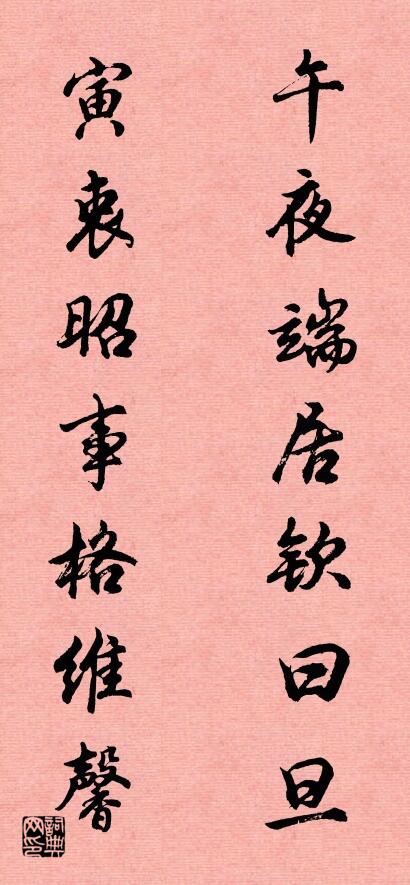 午夜端居钦曰旦
寅衷昭事格维馨
词典网印